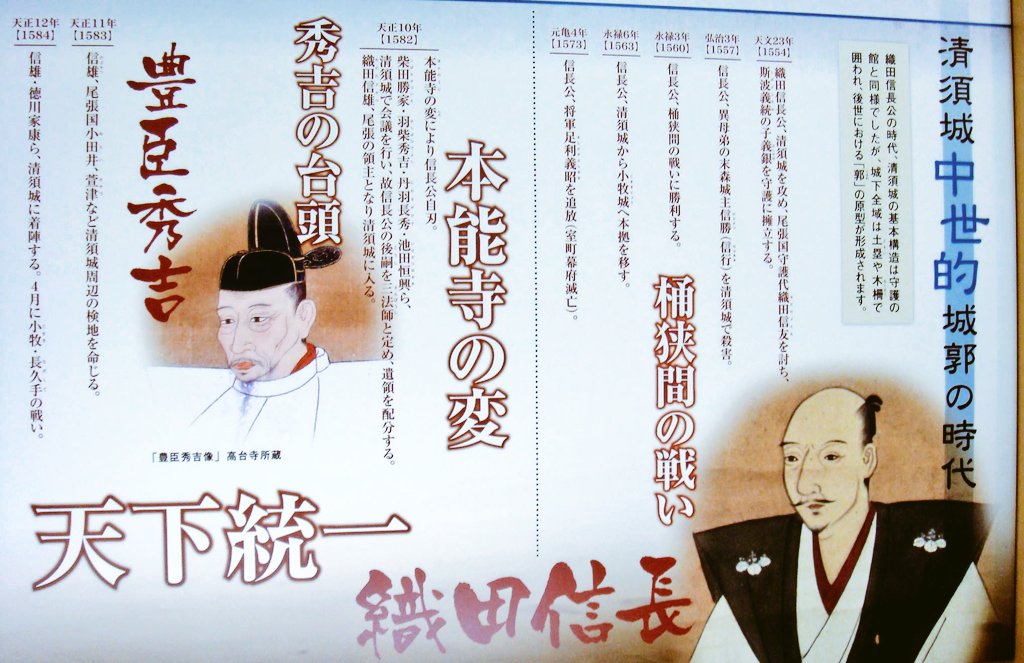 清須城中世的城郭の時代
織田信長公の時代、清須城の基本構造は守護の
館と同様でしたが、城下全域は土塁や木柵で
囲われ、後世における「郭」の原型が形成されます。
天文23年
【1554】
織田信長公、清須城を攻め、尾張国守護代織田信友を討ち、
斯波義統の子義銀を守護に擁立する。
弘治3年
【1557】
信長公、異母弟の末森城主信勝(信行)を清須城で殺害。
永禄3年
【1560】
信長公、桶狭間の戦いに勝利する。
永禄6年
【1563】
信長公、清須城から小牧城へ本拠を移す。
元亀4年
【1573】
信長公、将軍足利義昭を追放(室町幕府滅亡)。
桶狭間の戦い
織田信長
本能寺の変
天正10年
【1582】
本能寺の変により信長公自刃。
柴田勝家・羽柴秀吉・丹羽長秀・池田恒興ら、
清須城で会議を行い、故信長公の後嗣を三法師と定め、遺領を配分する。
織田信雄、尾張の領主となり清須城に入る。
秀吉の台頭
豊臣秀吉
「豊臣秀吉像」高台寺所蔵
天正11年
【1583】
信雄、尾張国小田井、萱津など清須城周辺の検地を命じる。
天正12年
【1584】
信雄・徳川家康ら、清須城に着陣する。4月に小牧・長久手の戦い。
天下統一